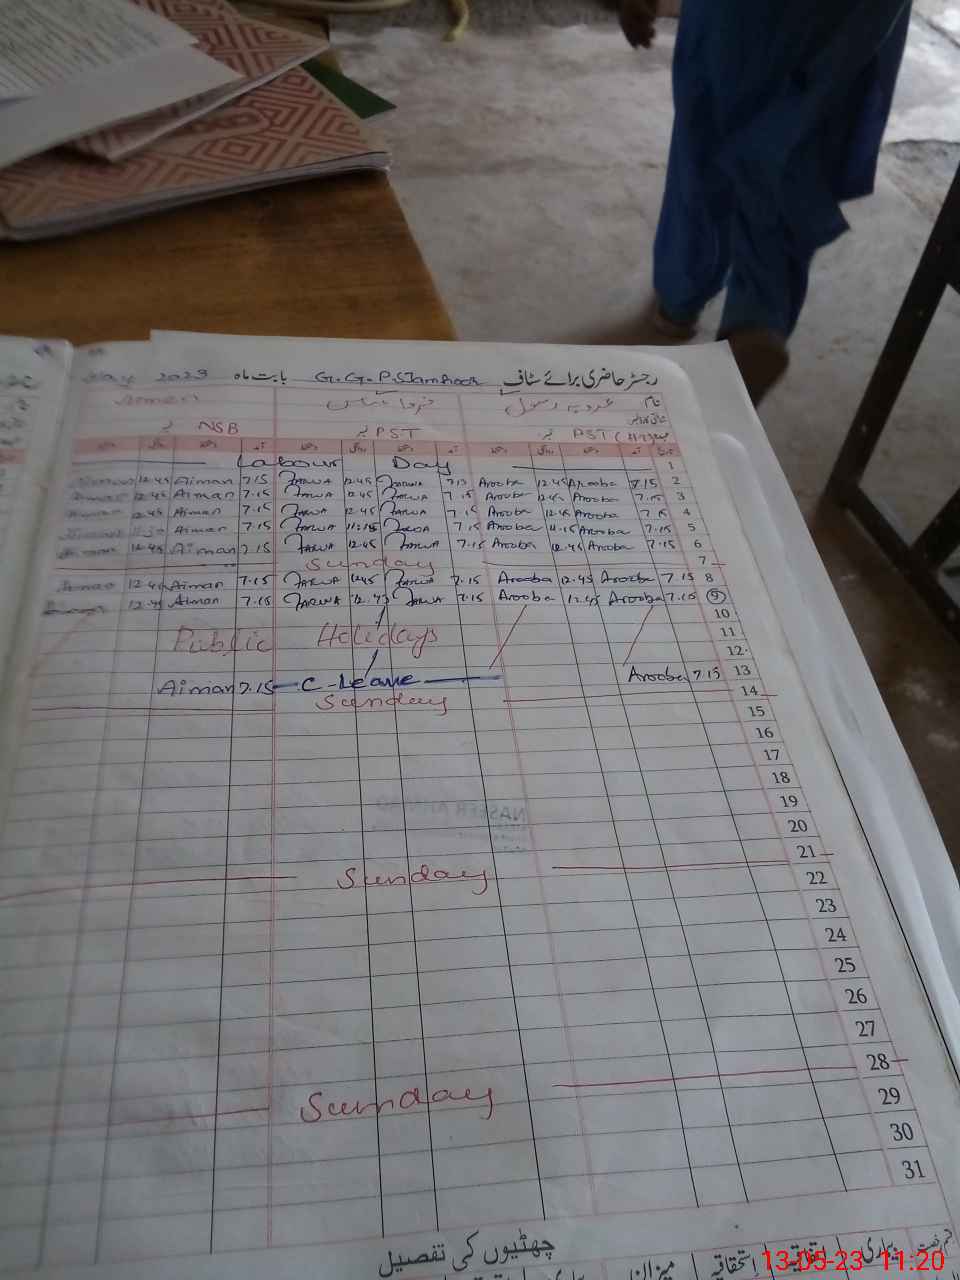 رجسٹر حاضری برائے سٹاف G.G.P.S بابت ماہ May 2023
نام
PST PST NSB
Labour Day 1
Aiman 12.45 Aiman 7.15 FARWA 12.45 FARWA 7.15 Arooba 12.45 Arooba 7.15 2
Aiman 12.45 Aiman 7.15 FARWA 12.45 FARWA 7.15 Arooba 12.45 Arooba 7.15 3
Aiman 12.45 Aiman 7.15 FARWA 12.45 FARWA 7.15 Arooba 12.45 Arooba 7.15 4
Aiman 7.15 FARWA 11:15 FARWA 7.15 Arooba 11.15 Arooba 7.15 5
Aiman 12.45 Aiman 7.15 FARWA 12.45 FARWA 7.15 Arooba 12.45 Arooba 7.15 6
Sunday 7
Aiman 12.45 Aiman 7.15 FARWA 12.45 FARWA 7.15 Arooba 12.45 Arooba 7.15 8
12.45 Aiman 7.15 FARWA 12.45 FARWA 7.15 Arooba 12.45 Arooba 7.15 9
10
Public Holidays 11
12
Aiman 7.15 C-Leave Arooba 7.15 13
Sunday 14
15
16
17
18
19
20
21
Sunday 22
23
24
25
26
27
28
Sunday 29
30
31
چھٹیوں کی تفصیل
بیماری اتفاقیہ استحقاقیہ میزان
13-05-23 11:20